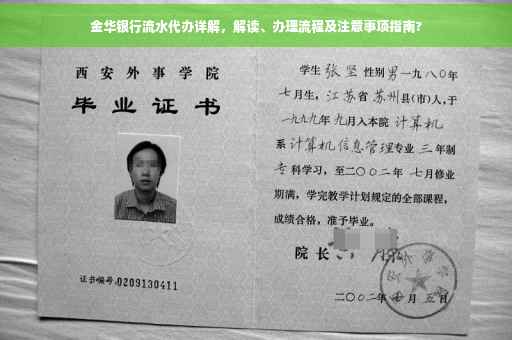 金华银行流水代办详解，解读、办理流程及注意事项指南?
西安外事学院
毕业证书
证书编号:0209130411
学生 张坚 性别男一九八〇年
七月生，江苏省苏州县(市)人，于
一九九九年九月入本院 计算机
系计算机信息管理专业 三年制
专科学习，至二〇〇二年 七月修业
期满，学完教学计划规定的全部课程，
成绩合格，准予毕业。
院长
二〇〇二年 月 五日